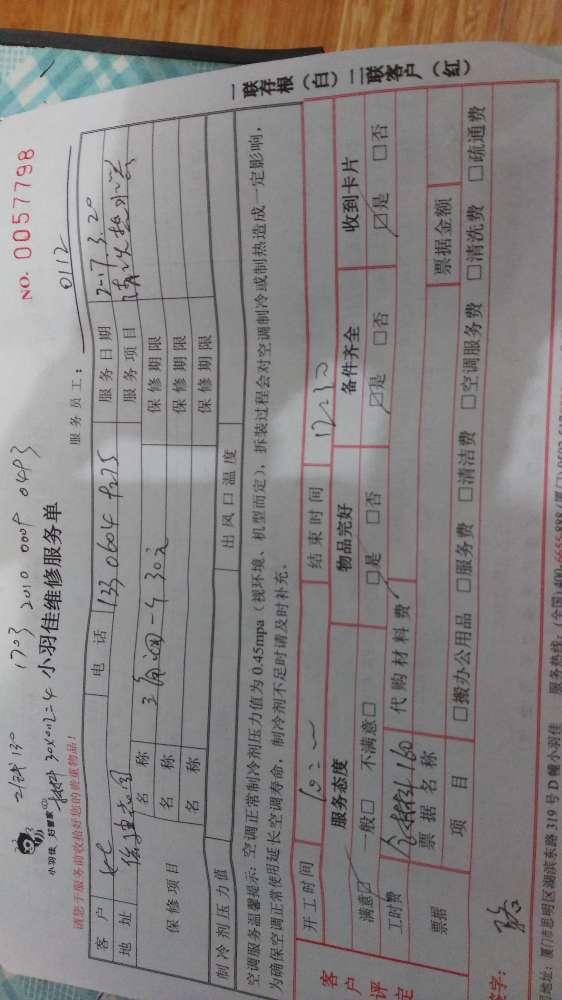 1703 2010 0009 0493
NO. 0057798
小羽佳 好管家
小羽佳维修服务单
服务员工： 0112
请您于服务前收拾好您的贵重物品！
客户 电话 服务日期 2017.3.20
地址 服务项目
保修项目
名称 三角阀一个30元 保修期限
名称 保修期限
名称 保修期限
制冷剂压力值 出风口温度
空调服务温馨提示：空调正常制冷剂压力值为0.45mpa（视环境、机型而定），拆装过程会对空调制冷或制热造成一定影响，
为确保空调正常使用延长空调寿命，制冷剂不足时请及时补充。
一联存根（白）二联客户（红）
客户评定
开工时间 结束时间 12:30
服务态度 物品完好 备件齐全 收到卡片
满意☑ 一般□ 不满意□ □是 □否 ☑是 □否 ☑是 □否
工时费 160 代购材料费
票据 票据名称 票据金额
项目 □搬办公用品 □服务费 □清洁费 □空调服务费 □清洗费 □疏通费
字：
地址：厦门市思明区湖滨东路319号D幢小羽佳 服务热线：(全国)400-6655-888